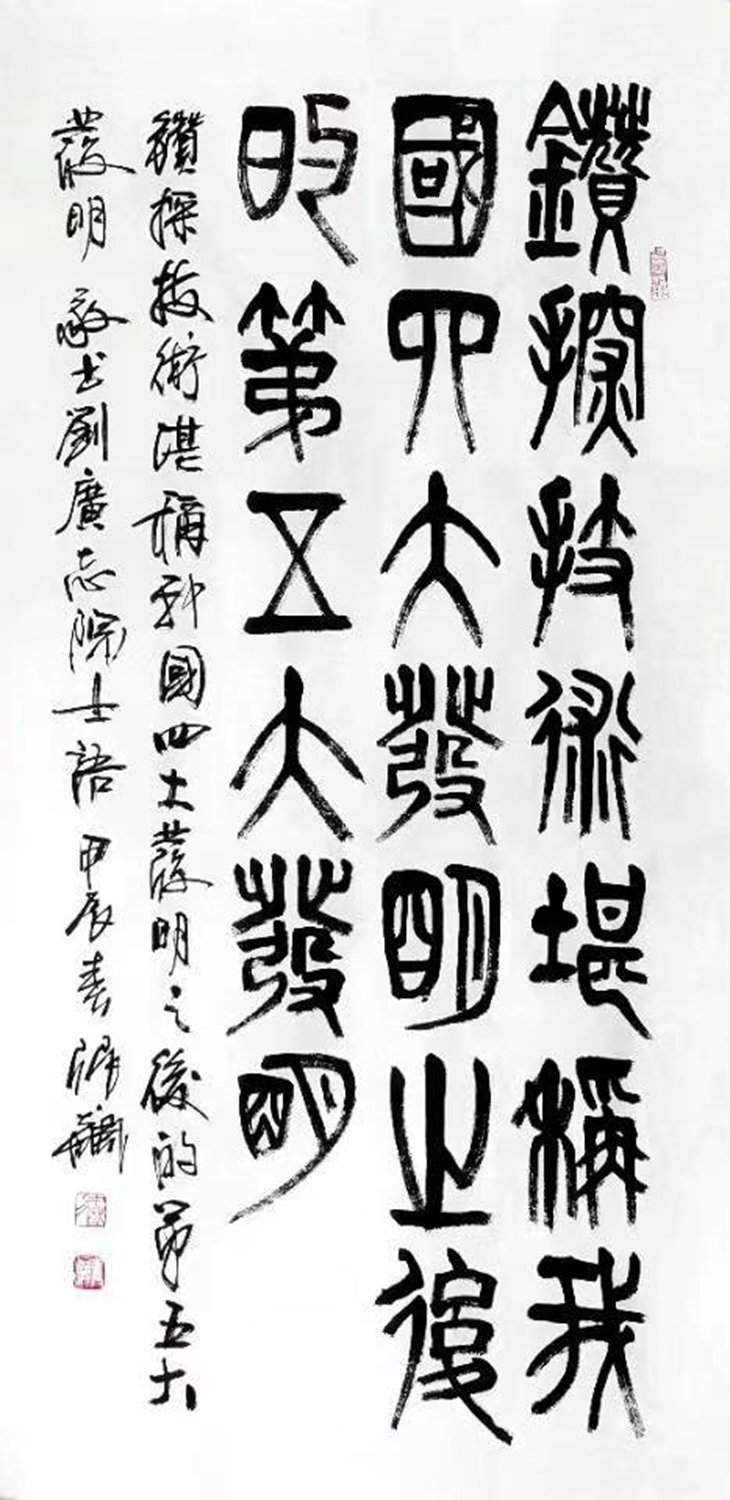 鑽探技術堪稱我
國四大發明之後
的第五大發明
鑽探技術湛稱我國四大發明之後的第五大
發明 敬書劉廣志院士語 甲辰春